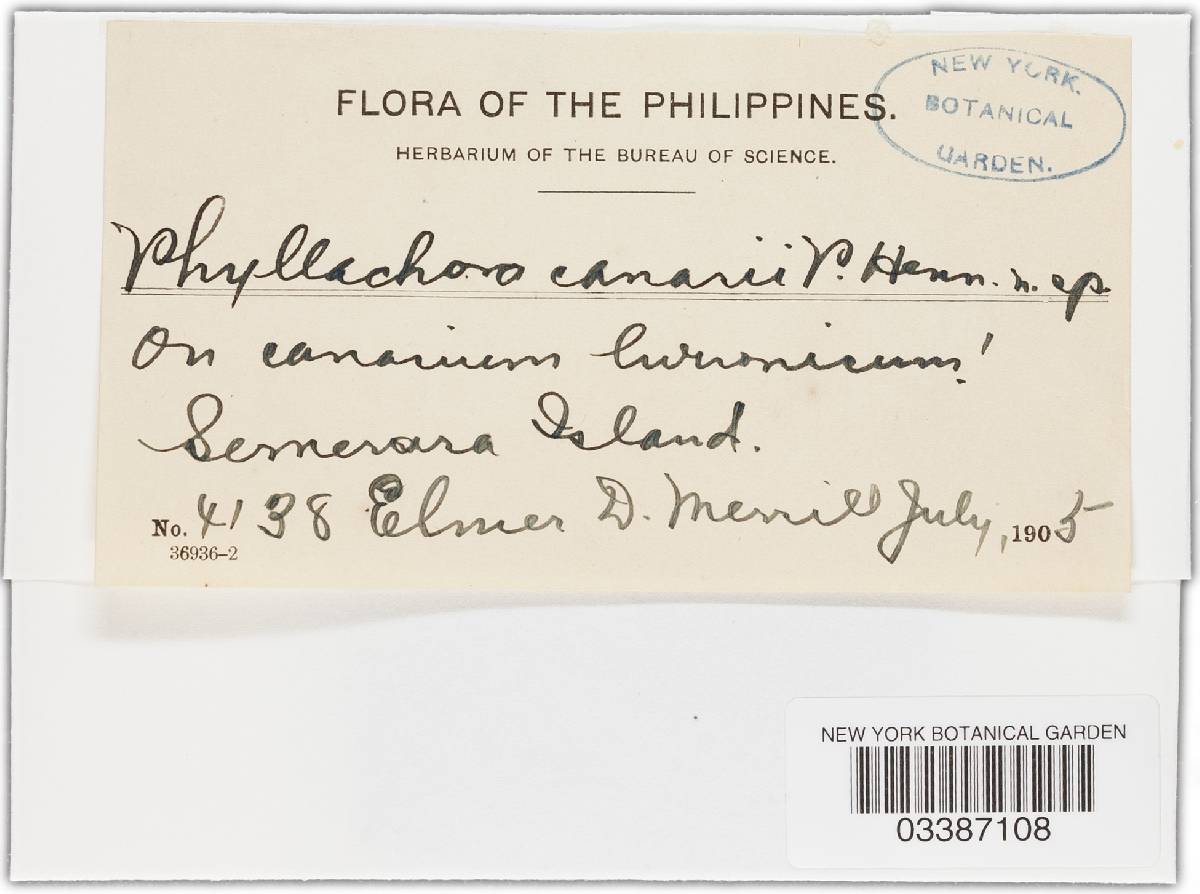 FLORA OF THE PHILIPPINES.
HERBARIUM OF THE BUREAU OF SCIENCE.
NEW YORK.
BOTANICAL
GARDEN.
Phyllachora canarii P. Henn. n. sp.
On canarium luzonicum!
Semerara Island.
No. 4138 Elmer D. Merrill July, 1905
36936-2
NEW YORK BOTANICAL GARDEN
03387108